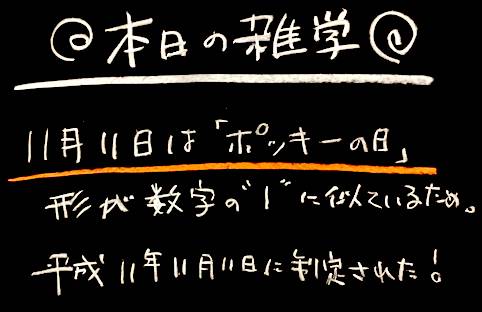 @本日の雑学@
11月11日は「ポッキーの日」
形が数字の"1"に似ているため。
平成11年11月11日に制定された!